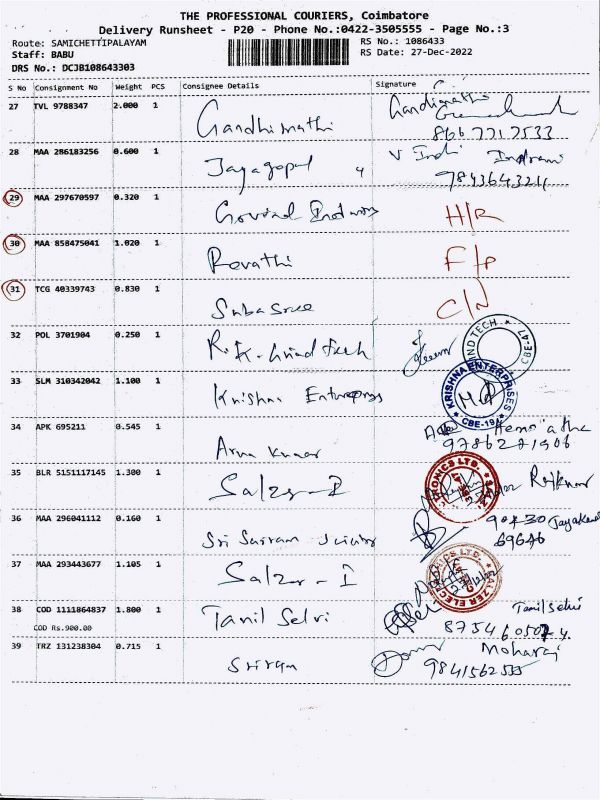 THE PROFESSIONAL COURIERS, Coimbatore
Delivery Runsheet - P20 - Phone No.:0422-3505555 - Page No.:3
Route: SAMICHETTIPALAYAM RS No.: 1086433
Staff: BABU RS Date: 27-Dec-2022
DRS No.: DCJB108643303
S No Consignment No Weight PCS Consignee Details Signature
27 TVL 9788347 2.000 1 Gandhimathi Gandimathi
8667717533
28 MAA 286183256 0.600 1 Jayagopal
9843643211
29 MAA 297670597 0.320 1 H/R
30 MAA 858475041 1.020 1 Revathi F/P
31 TCG 40339743 0.830 1 Subasree C/N
32 POL 3701904 0.250 1 R.K. Grind Tech
IND TECH. * CBE-47
33 SLM 310342042 1.100 1 Krishna Enterprises
KRISHNA ENTERPRISES * CBE-19
34 APK 695211 0.545 1 Arun Kumar
9786271906
35 BLR 5151117145 1.300 1 Salzer - I Rajkumar
36 MAA 296041112 0.160 1 Sri Sairam
90430
69646
37 MAA 293443677 1.105 1 Salzer - I
SALZER ELEC
38 COD 1111864837 1.800 1 Tamil Selvi Tamil Selvi
COD Rs.900.00 8754605074
39 TRZ 131238304 0.715 1 Sriram Moharaj
9841562555